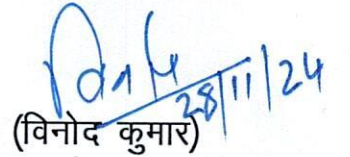 28/11/24
(विनोद कुमार)